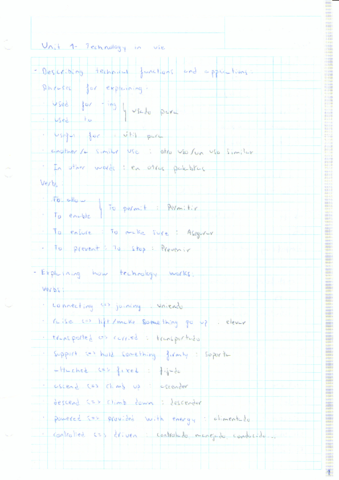 Unit 1- Technology in use
- Describing technical functions and applications.
for explaining.
Used for -ing
Used to } usado para
Useful for útil para
another/a similar use : otro uso/un uso similar
In other words : en otras palabras
Verbs
To allow
To enable } To permit : Permitir
To ensure To make sure : Asegurar
- To prevent : To stop : Prevenir
- Explaining how technology works.
Verbs:
connecting <=> joining : uniendo
raise <=> lift/make something go up : elevar
transported <=> carried : transportado
support <=> hold something firmly : soportar
attached <=> fixed : fijado
ascend <=> climb up : ascender
descend <=> climb down : descender
powered <=> provided with energy : alimentado
controlled <=> driven : controlado manejado conducido...